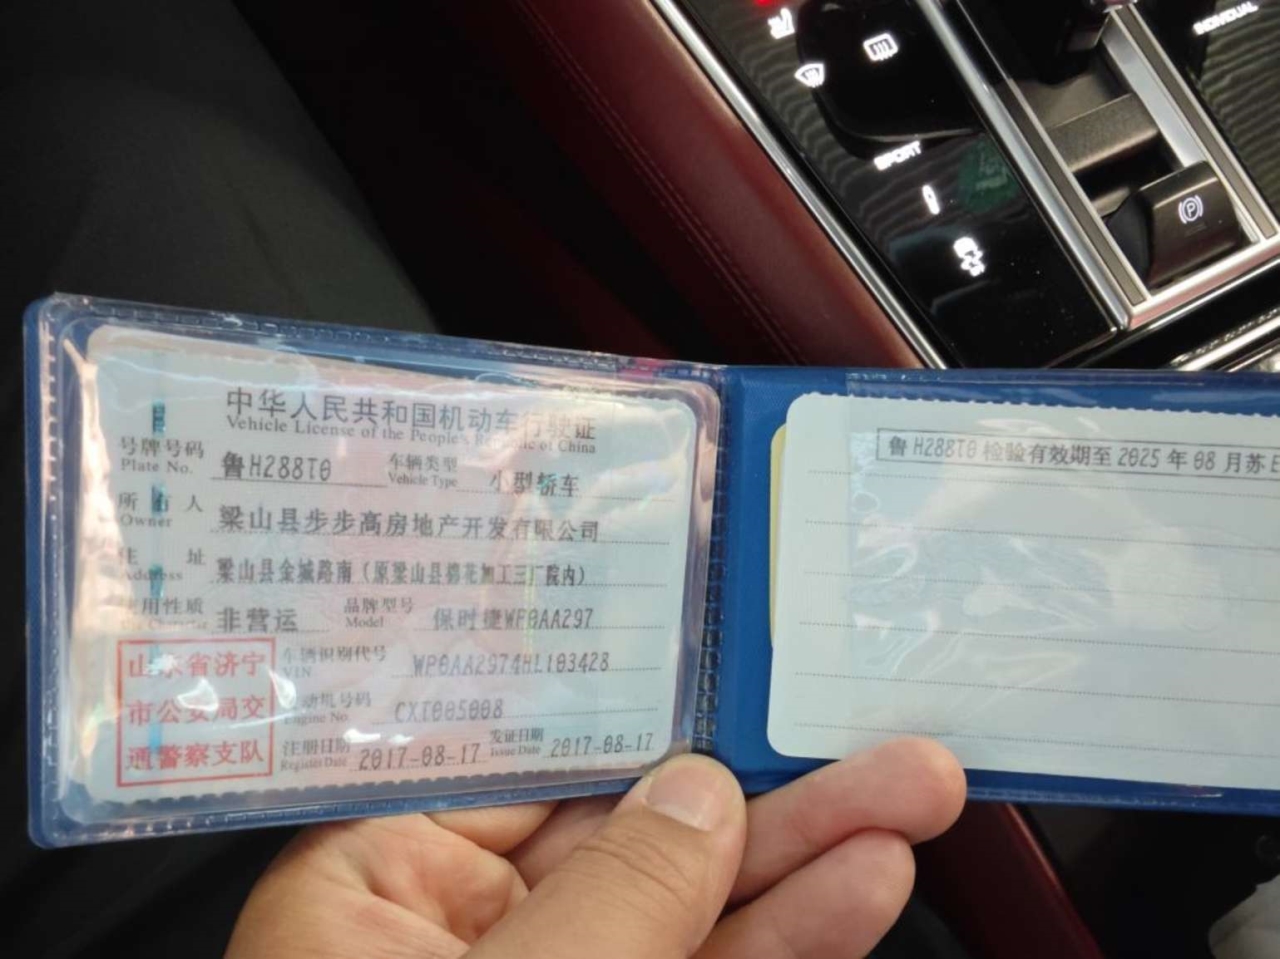 INDIVIDUAL
SPORT
P
中华人民共和国机动车行驶证
Vehicle License of the People's Republic of China
号牌号码 鲁H288T0 车辆类型 小型轿车
Plate No. Vehicle Type
所有人 梁山县步步高房地产开发有限公司
Owner
住址 梁山县金城路南（原梁山县棉花加工三厂院内）
Address
使用性质 非营运 品牌型号 保时捷WP0AA297
Use Character Model
山东省济宁
市公安局交
通警察支队
车辆识别代号 WP0AA2974HL103428
VIN
发动机号码 CXT005008
Engine No.
注册日期 2017-08-17 发证日期 2017-08-17
Register Date Issue Date
鲁H288T0 检验有效期至 2025 年 08 月苏E